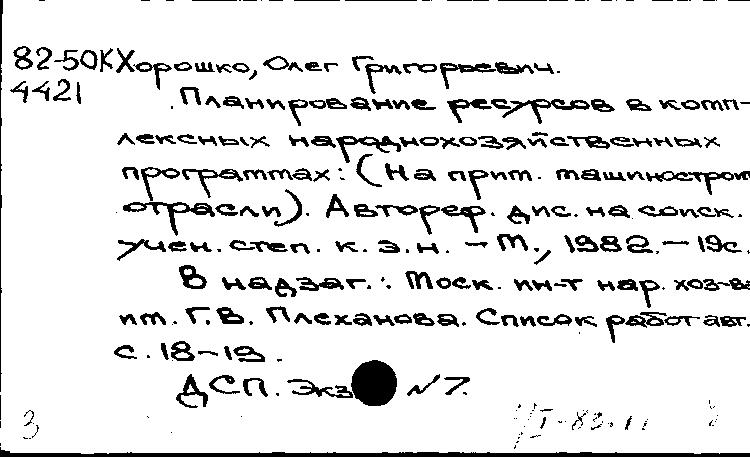 82-50К Хорошко, Олег Григорьевич.
4421
Планирование ресурсов в комп-
лексных народнохозяйственных
программах: (На прим. машиностроит
отрасли). Автореф. дис. на соиск.
учен. степ. к. э. н. - М., 1982. - 19с.
В надзаг.: Моск. ин-т нар. хоз-ва
им. Г. В. Плеханова. Список работ авт.
с. 18-19.
ДСП. Экз N 7.
3